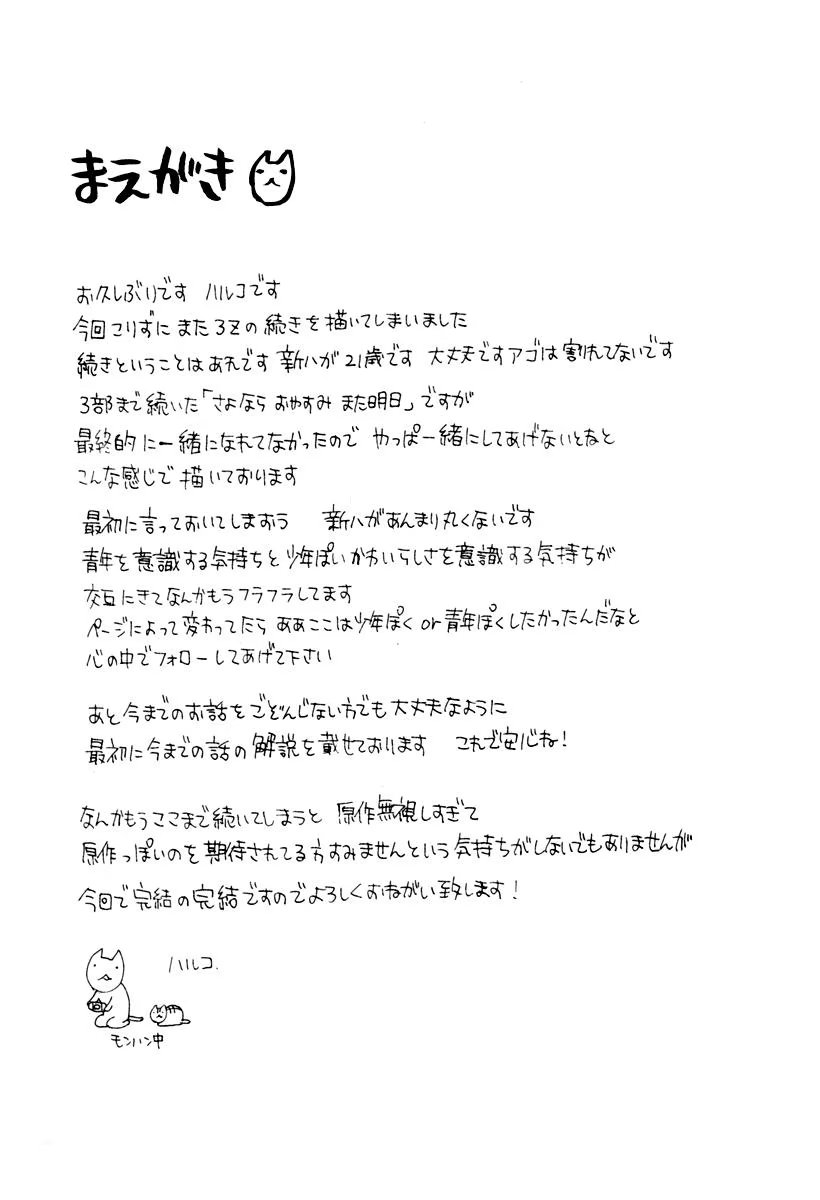 まえがき
お久しぶりです ハルコです
今回こりずにまた3Zの続きを描いてしまいました
続きということはあれです 新八が21歳です 大丈夫ですアゴは割れてないです
3部まで続いた「さよなら おやすみ また明日」ですが
最終的に一緒になれてなかったので やっぱ一緒にしてあげないとねと
こんな感じで描いております
最初に言っておいてしまおう 新八があんまり丸くないです
青年を意識する気持ちと少年ぽいかわいらしさを意識する気持ちが
交互にきてなんかもうフラフラしてます
ページによって変わってたら ああここは少年ぽく or 青年ぽくしたかったんだなと
心の中でフォローしてあげて下さい
あと今までのお話をごぞんじない方でも大丈夫なように
最初に今までの話の解説を載せております これで安心ね!
なんかもうここまで続いてしまうと 原作無視しすぎて
原作っぽいのを期待されてる方すみませんという気持ちがしないでもありませんが
今回で完結の完結ですのでよろしくおねがい致します!
ハルコ.
モンハン中